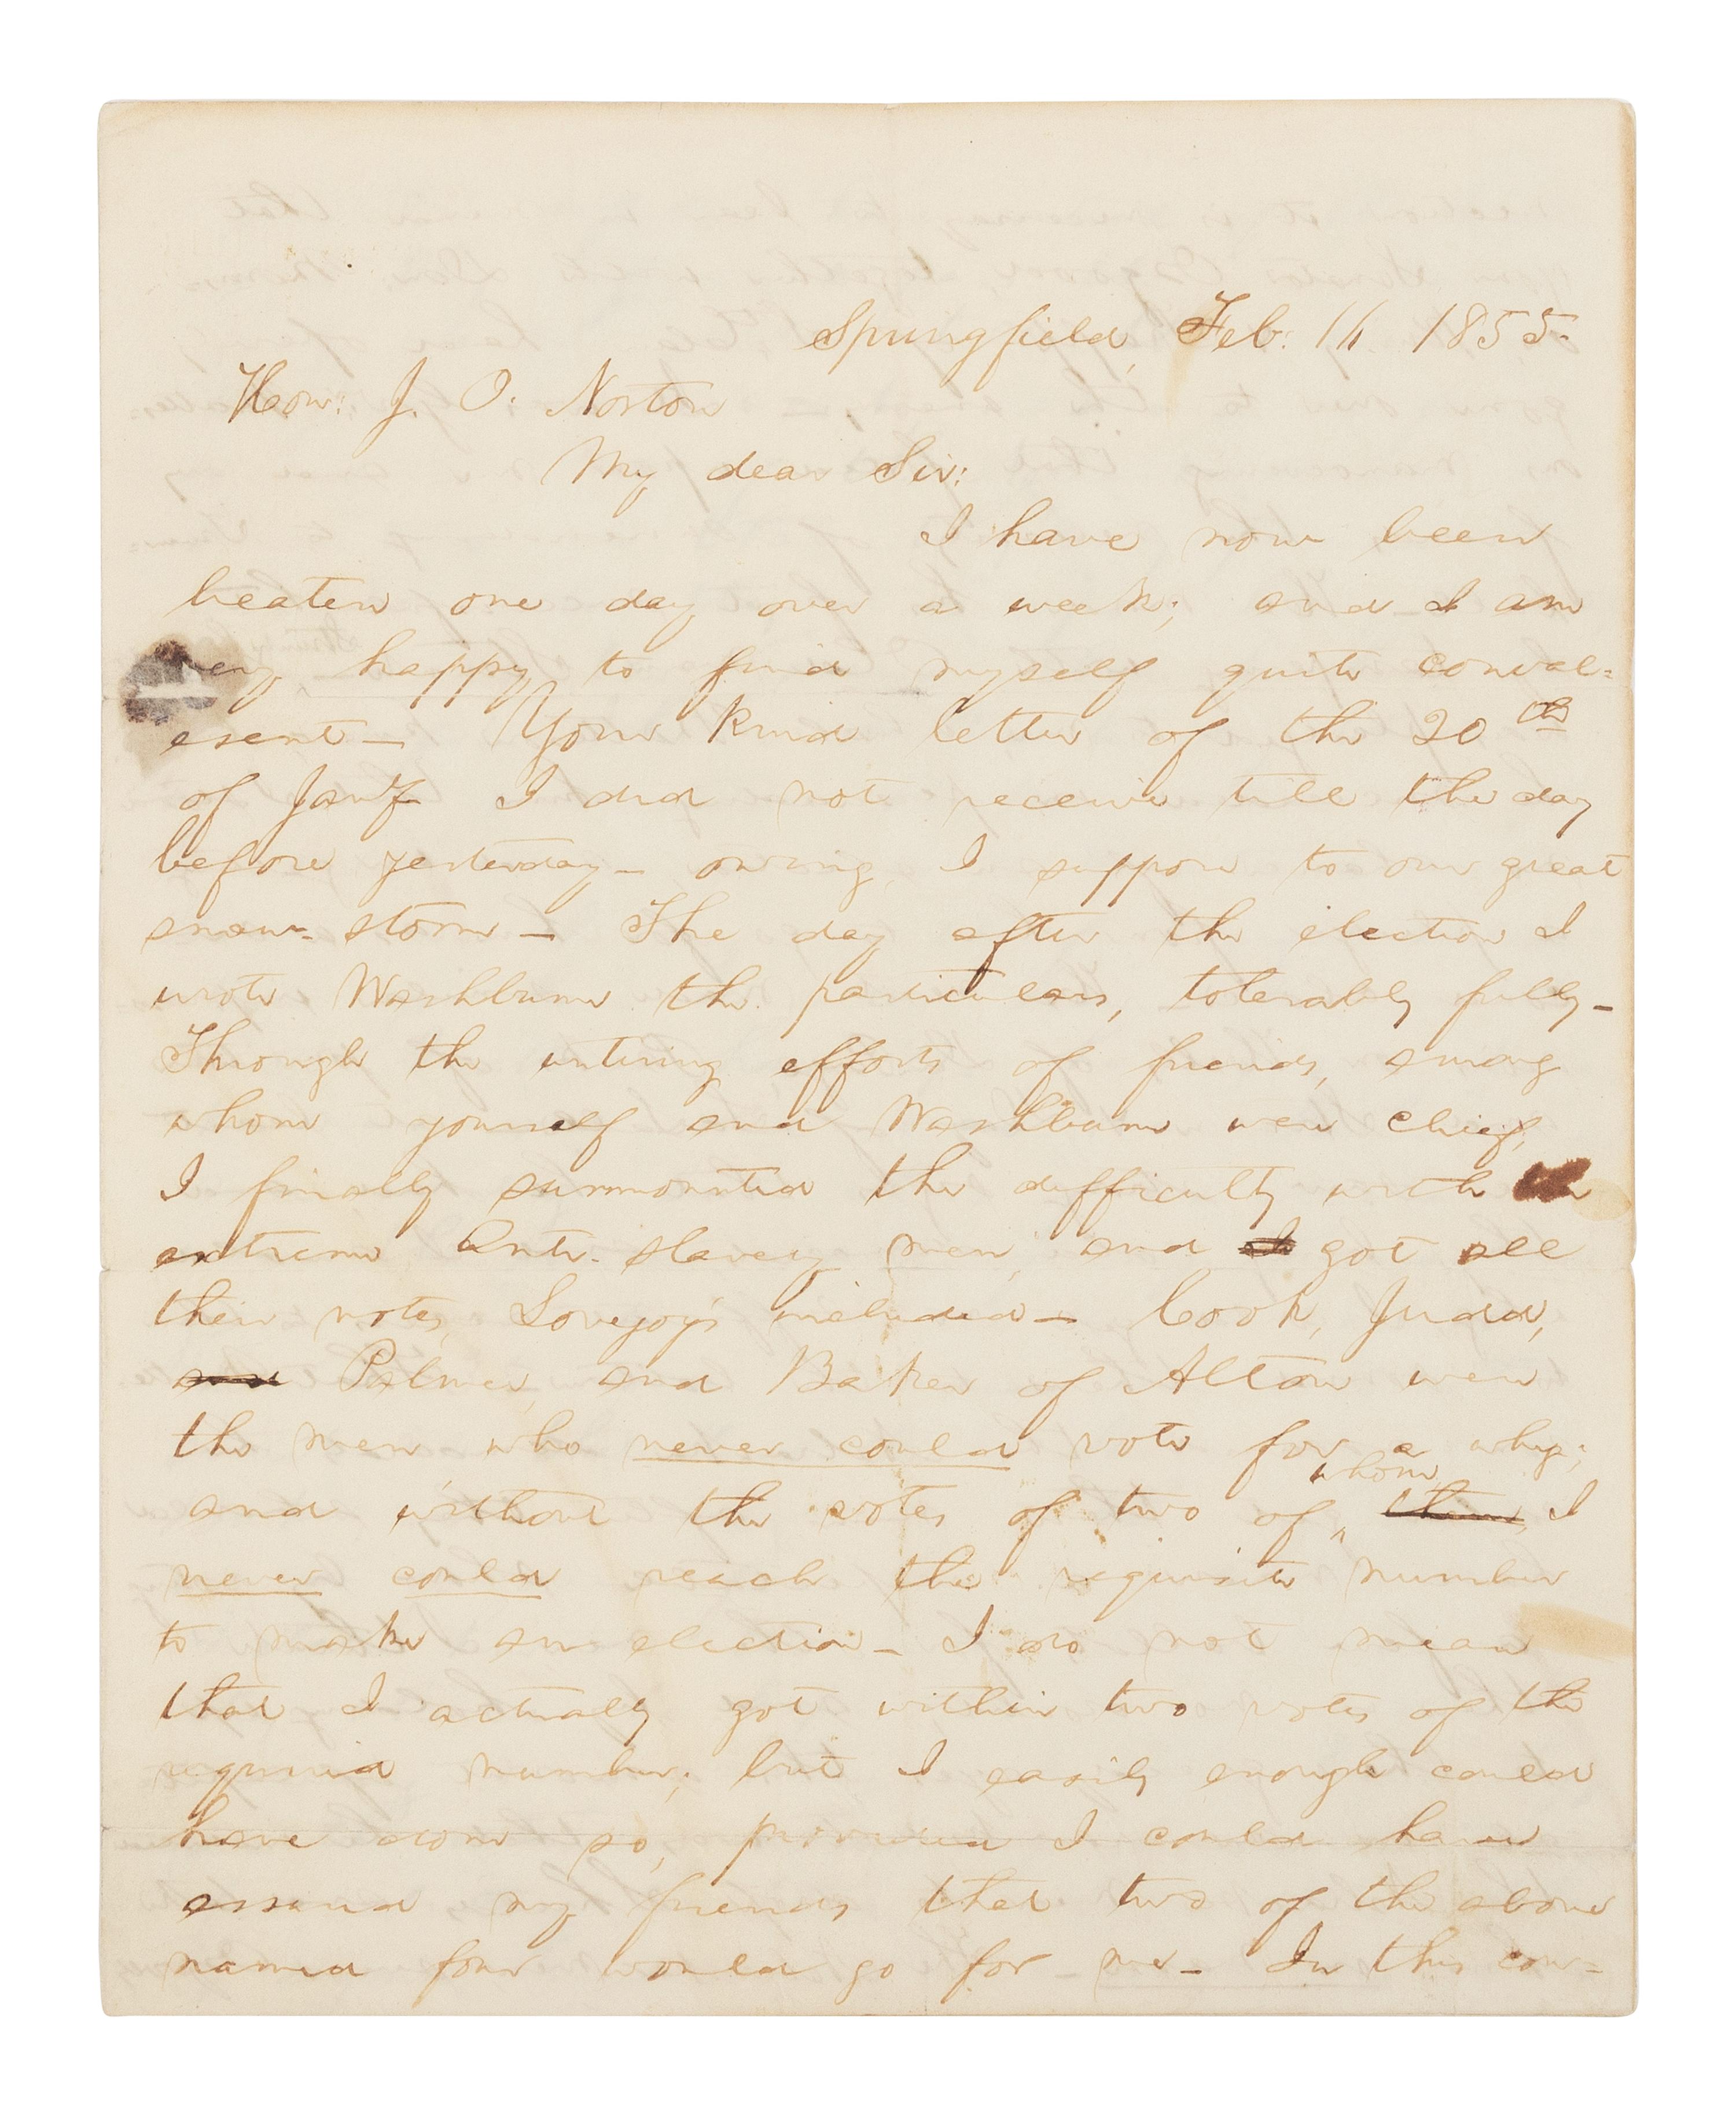 Springfield, Feb: 16 1855.
Hon: J. O. Norton
My dear Sir:
I have now been
beaten one day over a week; and I am
very happy to find myself quite conval=
esent— Your kind letter of the 20th
of Jany I did not receive till the day
before yesterday— owing, I suppose to our great
snow-storm— The day after the election I
wrote Washburne the particulars, tolerably fully—
Through the untiring efforts of friends, among
whom yourself and Washburne were chief,
I finally surmounted the difficulty with
extreme Anti-slavery men, and got all
their votes, Lovejoy's included— Cook, Judd,
and Palmer, and Baker of Alton were
the men who never could vote for a whig;
and without the votes of two of whom them, I
never could reach the requisite number
to make an election— I do not mean
that I actually got within two votes of the
required number; but I easily enough could
have done so, provided I could have
assured my friends that two of the above
named four would go for me— In this con=